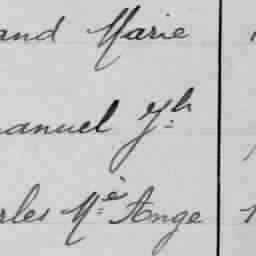 and Marie
anuel Jh
rles Mie Ange